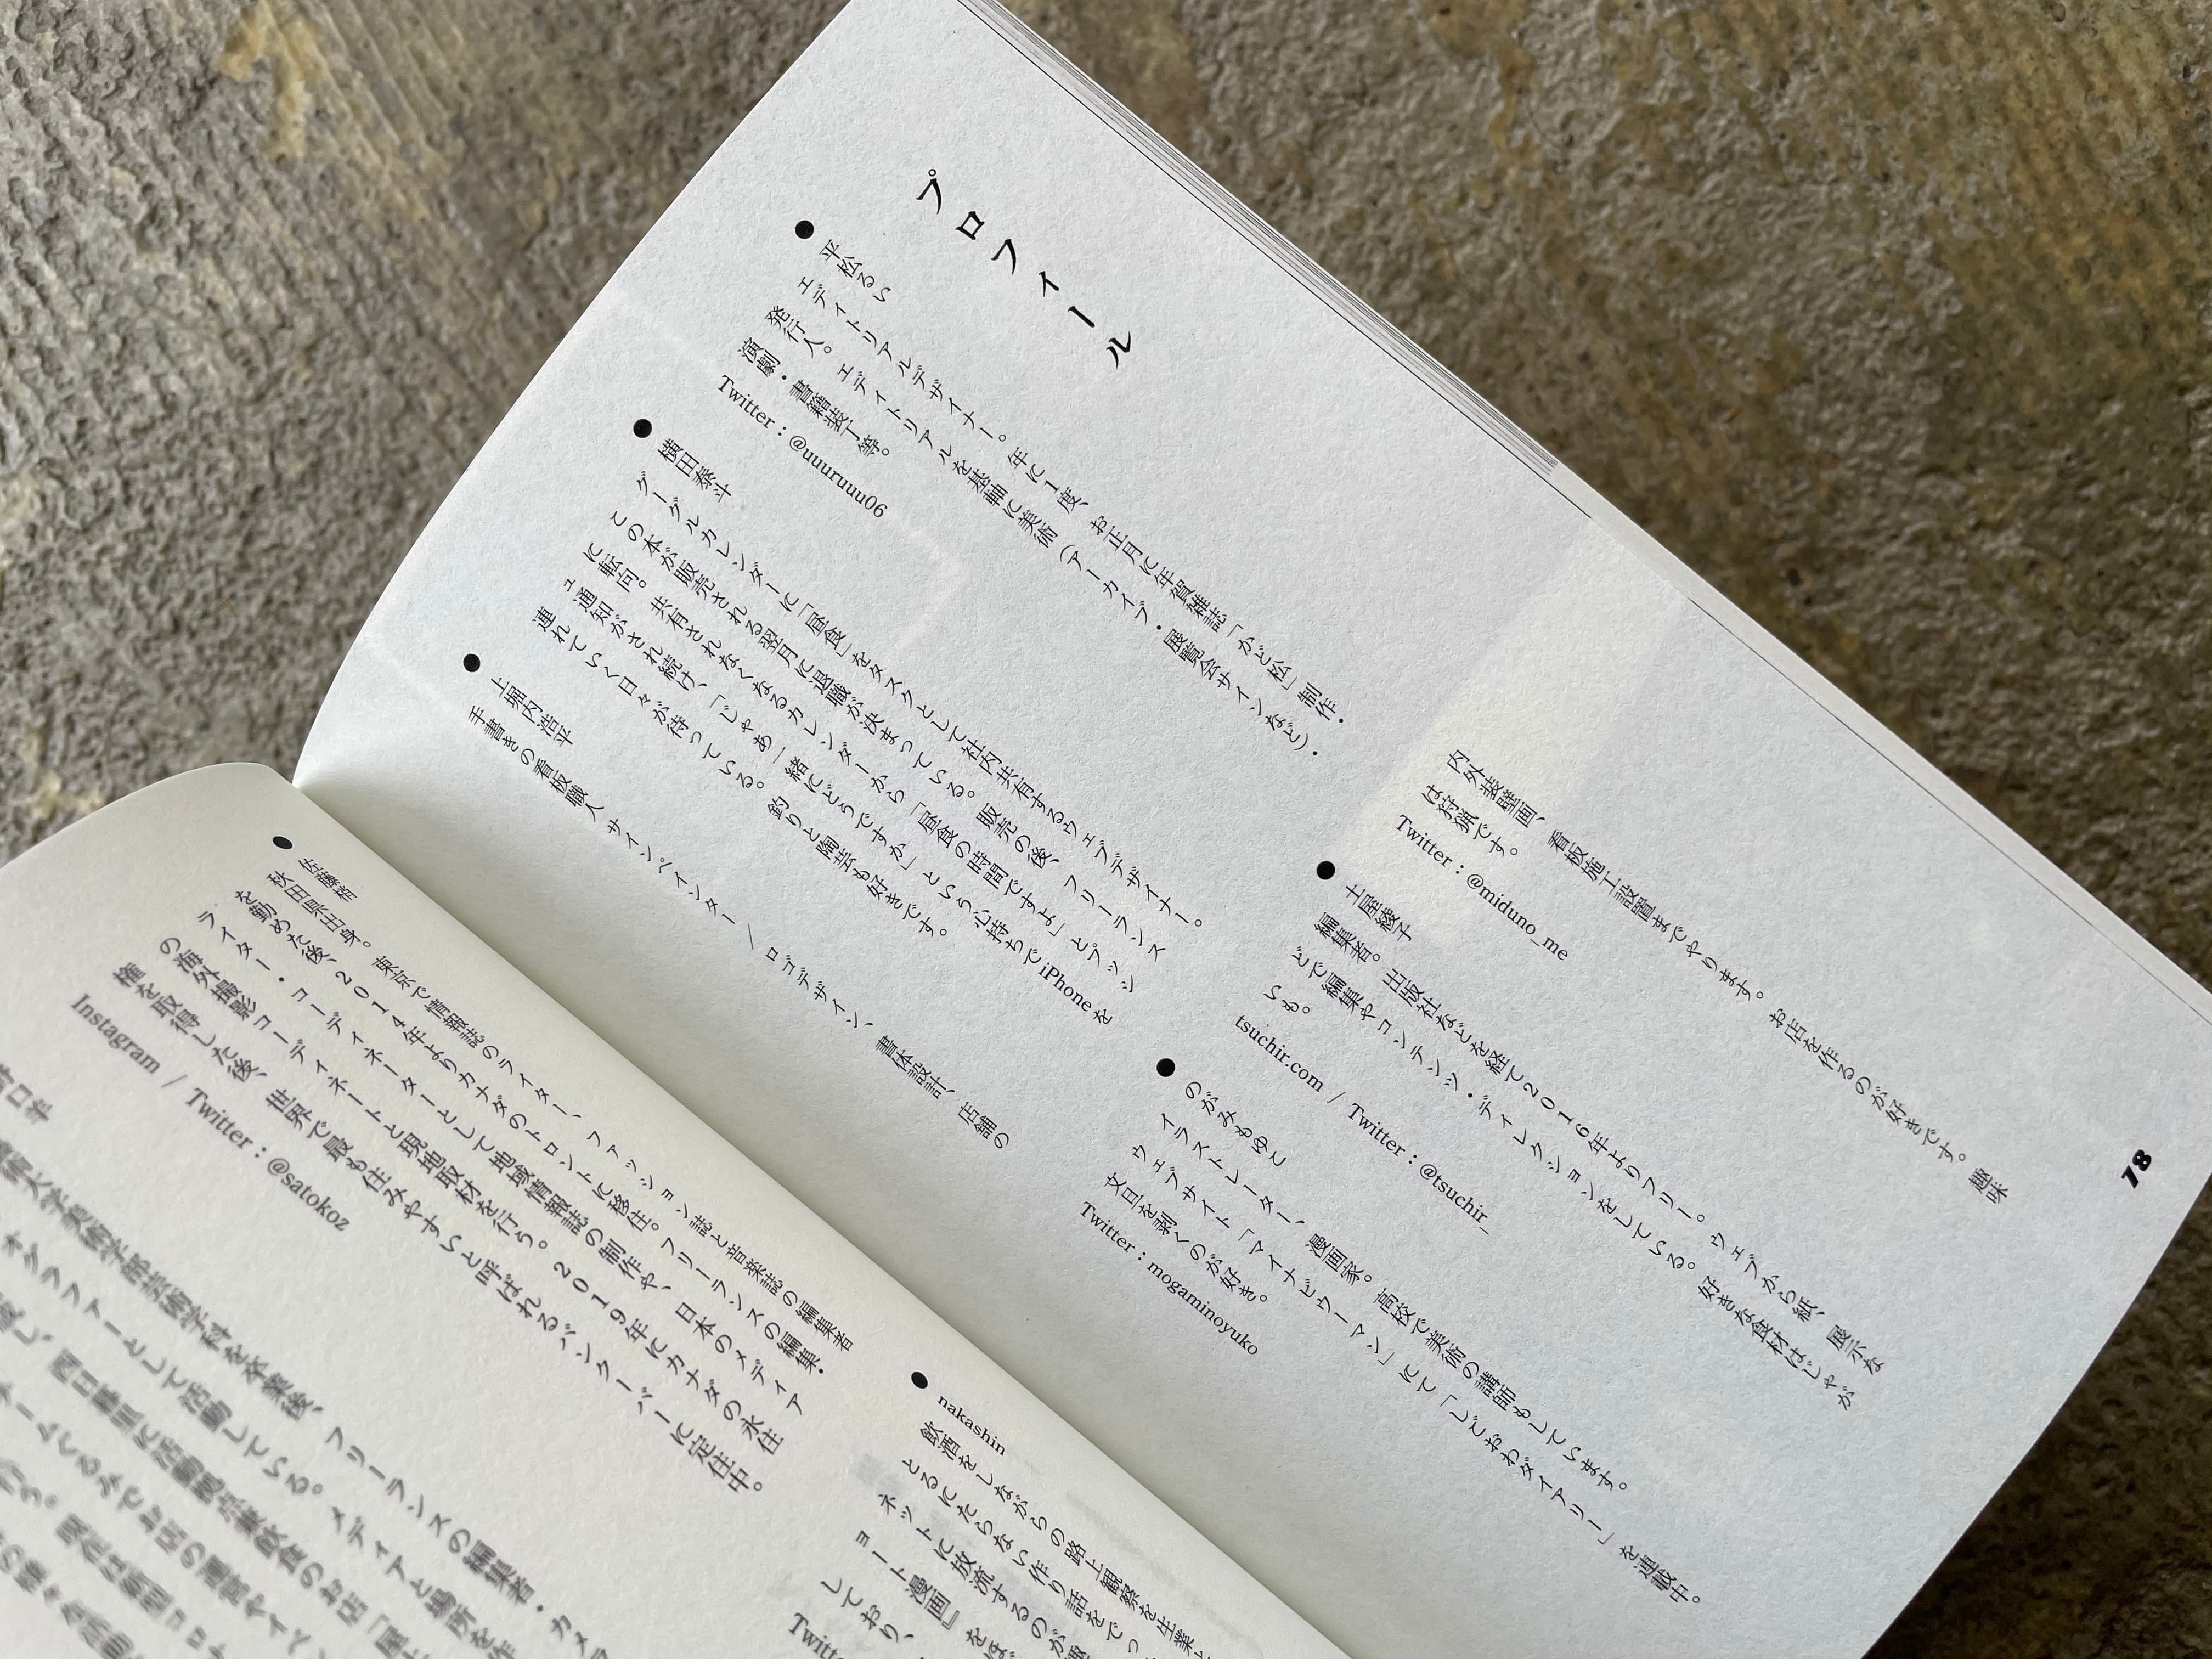 プロフィール
●平松るい
エディトリアルデザイナー。年に1度、お正月に年賀雑誌「かど松」制作・
発行人。エディトリアルを基軸に美術（アーカイブ・展覧会サインなど）・
演劇・書籍装丁等。
Twitter：@uuuruuu06
●横田泰斗
グーグルカレンダーに「昼食」をタスクとして社内共有するウェブデザイナー。
この本が販売される翌月に退職が決まっている。販売の後、フリーランス
に転向。共有されなくなるカレンダーから「昼食の時間ですよ」とプッシ
ュ通知がされ続け、「じゃあ一緒にどうですか」という心持ちでiPhoneを
連れていく日々が待っている。釣りと陶芸も好きです。
●上堀内浩平
手書きの看板職人 サインペインター / ロゴデザイン、書体設計、店舗の
内外装壁画、看板施工設置までやります。お店を作るのが好きです。趣味
は狩猟です。
Twitter：@miduno_me
●土屋綾子
編集者。出版社などを経て2016年よりフリー。ウェブから紙、展示な
どで編集やコンテンツ・ディレクションをしている。好きな食材はじゃが
いも。
tsuchir.com / Twitter：@tsuchir_
●のがみもゆこ
イラストレーター、漫画家。高校で美術の講師もしています。
ウェブサイト「マイナビウーマン」にて「しごおわダイアリー」を連載中。
文旦を剥くのが好き。
Twitter：mogaminoyuko
78
●佐藤梢
秋田県出身。東京で情報誌のライター、ファッション誌と音楽誌の編集者
を勤めた後、2014年よりカナダのトロントに移住。フリーランスの編集・
ライター・コーディネーターとして地域情報誌の制作や、日本のメディア
の海外撮影コーディネートと現地取材を行う。2019年にカナダの永住
権を取得した後、世界で最も住みやすいと呼ばれるバンクーバーに定住中。
Instagram / Twitter：@satokoz
術大学美術学部芸術学科を卒業後、フリーランスの編集者・カメラ
オグラファーとして活動している。メディアと場所を作
●nakashin
飲酒をしながらの路上観察を生業と
とるにたらない作り話をでっ
ネットに放流するのが
ョート漫画』をほ
しており、